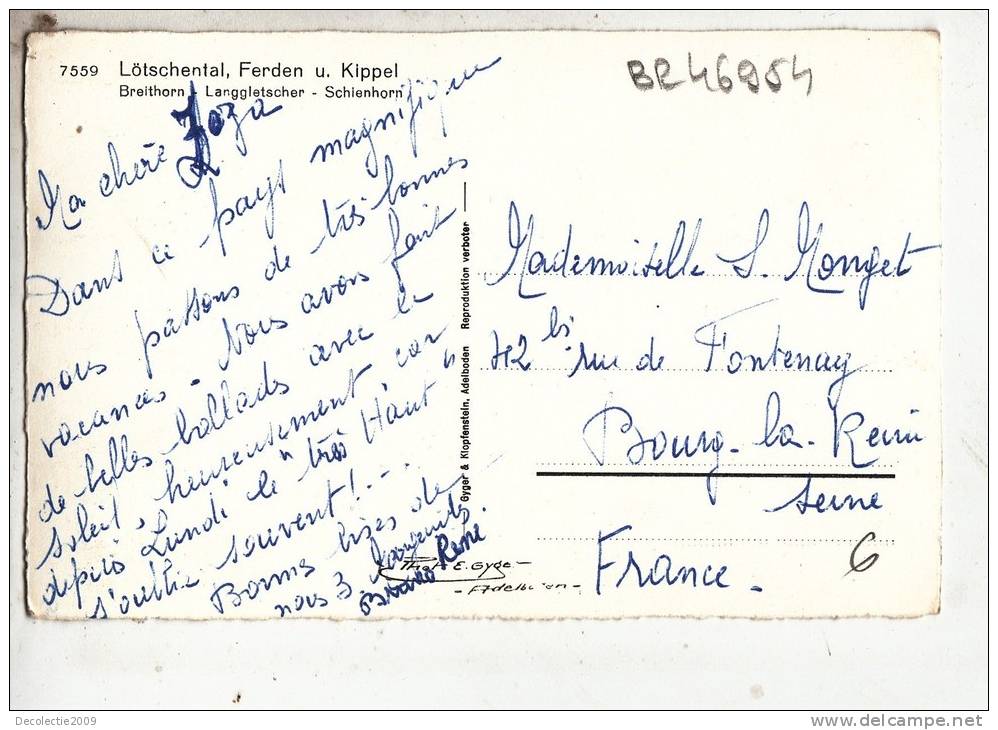 7559 Lötschental, Ferden u. Kippel
Breithorn - Langgletscher - Schienhorn
BR46954
Ma chère Zoza
Dans ce pays magnifique
nous passons de très bonnes
vacances - Nous avons fait
de belles ballades avec le
soleil, heureusement car
depuis Lundi le "très Haut"
s'oublie souvent! -
Bonnes bises de
nous 3
Bruno René.
Gyger & Klopfenstein, Adelboden Reproduktion verboten
Phot. E. Gyger
- Adelboden -
Mademoiselle S. Monget
42 bis rue de Fontenay
Bourg-la-Reine
Seine
France.
6
Decolectie2009
delcampe.net